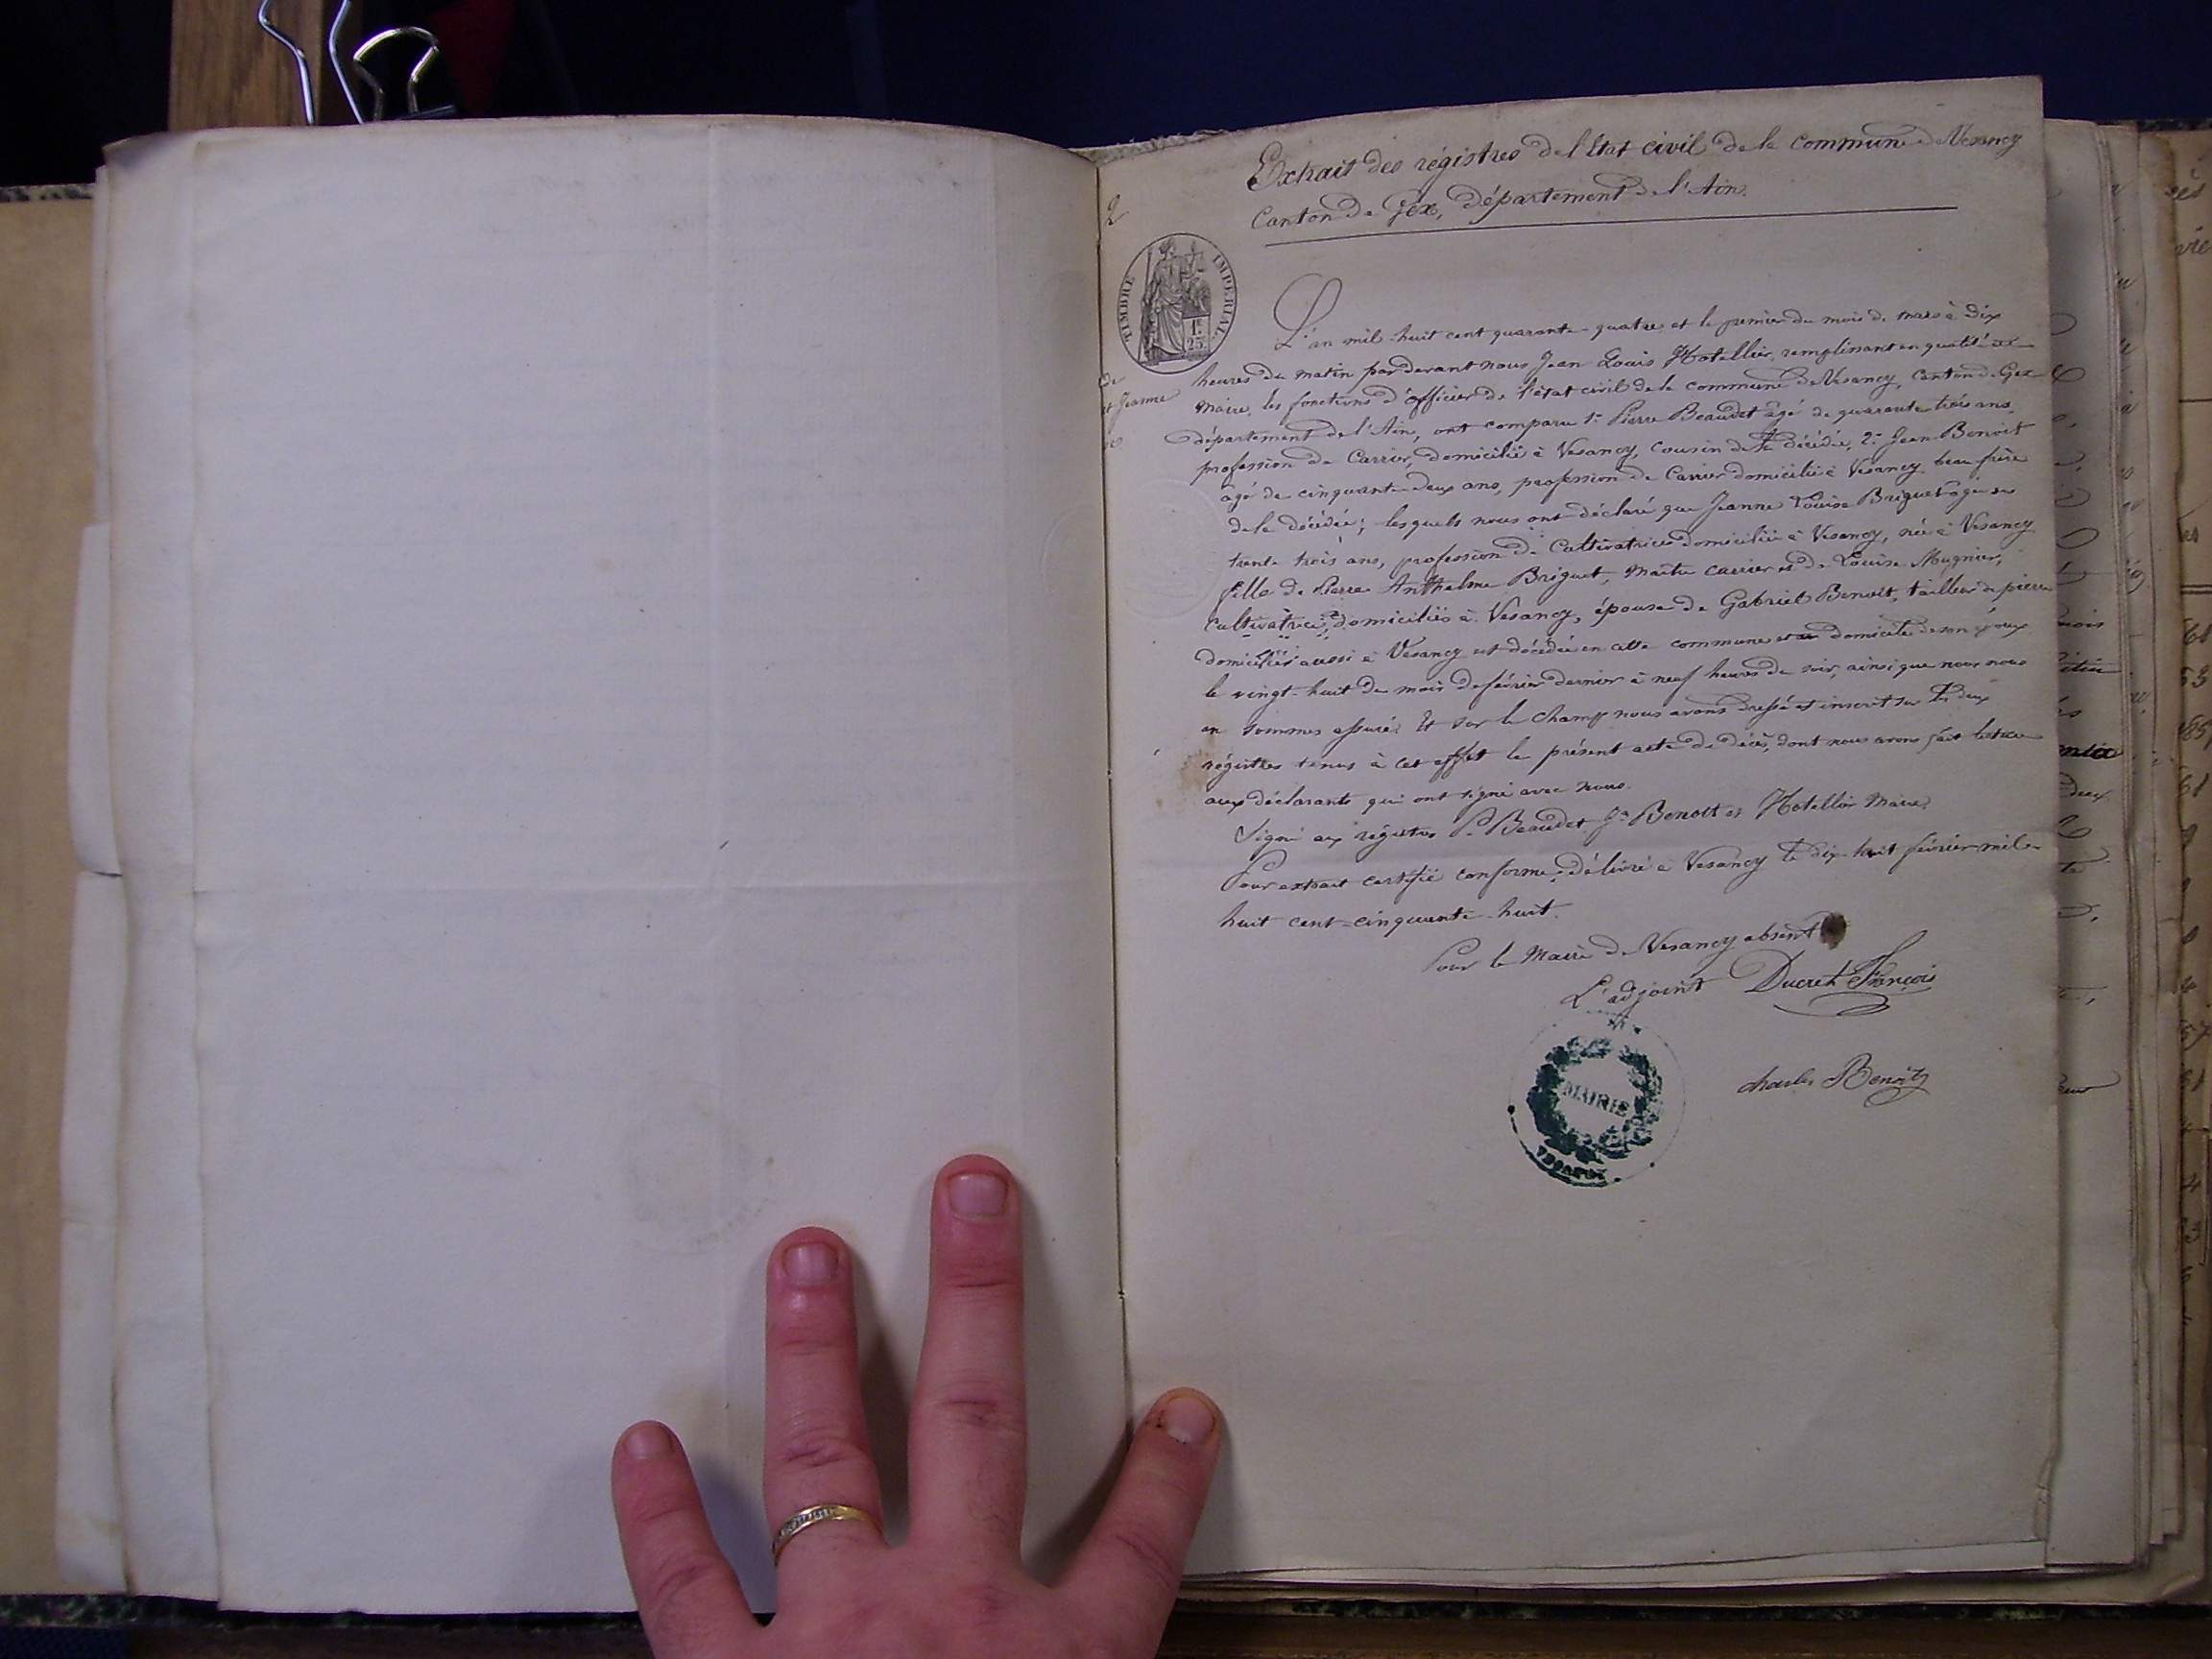 Extrait des régistres de l'Etat civil de la commune de Vesancy
Canton de Gex, département de l'Ain.
2
TIMBRE IMPERIAL
1F
25c
L'an mil-huit cent quarante-quatre et le premier du mois de mars à dix
heures du matin par devant nous Jean Louis Hotellier, remplissant en qualité de
maire, les fonctions d'officier de l'état civil de la commune de Vesancy, canton de Gex
et Jeanne
département de l'Ain, ont comparu 1° Pierre Beaudet âgé de quarante trois ans,
profession de Carrier, domicilié à Vesancy, cousin de la décédée, 2° Jean Benoit
âgé de cinquante deux ans, profession de Carrier domicilié à Vesancy beau frère
de la décédée; lesquels nous ont déclaré que Jeanne Louise Briguet âgée de
trente trois ans, profession de Cultivatrice domiciliée à Vesancy, née à Vesancy
fille de Pierre Anthelme Briguet, Maître carrier et de Louise Mugnier,
cultivatrice, domiciliés à Vesancy, épouse de Gabriel Benoit, tailleur de pierre
domiciliés aussi à Vesancy est décédée en cette commune et au domicile de son époux
le vingt-huit du mois de février dernier à neuf heures du soir, ainsi que nous nous
en sommes assurés Et sur le champ nous avons dressé et inscrit sur les deux
régistres tenus à cet effet le présent acte de décès, dont nous avons fait lecture
aux déclarants qui ont signé avec nous.
Signé aux régistres P. Beaudet Jn Benoit et Hotellier Maire.
Pour extrait certifié conforme, délivré à Vesancy le dix-huit février mil-
huit cent-cinquante-huit.
Pour le Maire de Vesancy absent
L'adjoint Ducret François
MAIRIE
VESANCY
charles Benoit